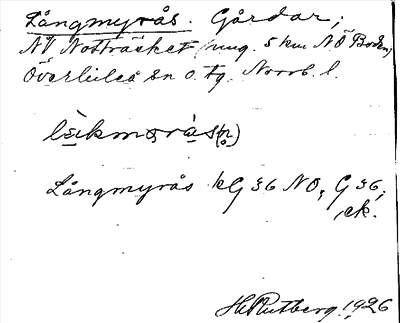 Långmyrås. Gårdar,
NV Notträsket, ung. 5 km NÖ Boden,
Överluleå sn o. tg. Norrb. l.
Långmyrås kG 36 NO, G 36,
ek.
H Rutberg. 1926